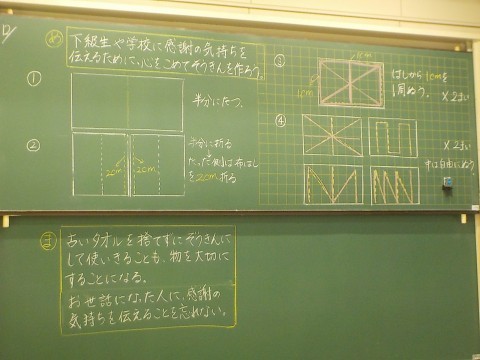 12/
め 下級生や学校に感謝の気持ちを
伝えるために、心をこめてぞうきんを作ろう。
①
半分にたつ。
②
2cm 2cm
半分に折る
たった側は布はし
を2cm折る
③
1cm
1cm
はしから1cmを
1周ぬう。
×2まい
④
×2まい
中は自由にぬう
ま 古いタオルを捨てずにぞうきんに
して使いきることも、物を大切に
することになる。
お世話になった人に、感謝の
気持ちを伝えることを忘れない。